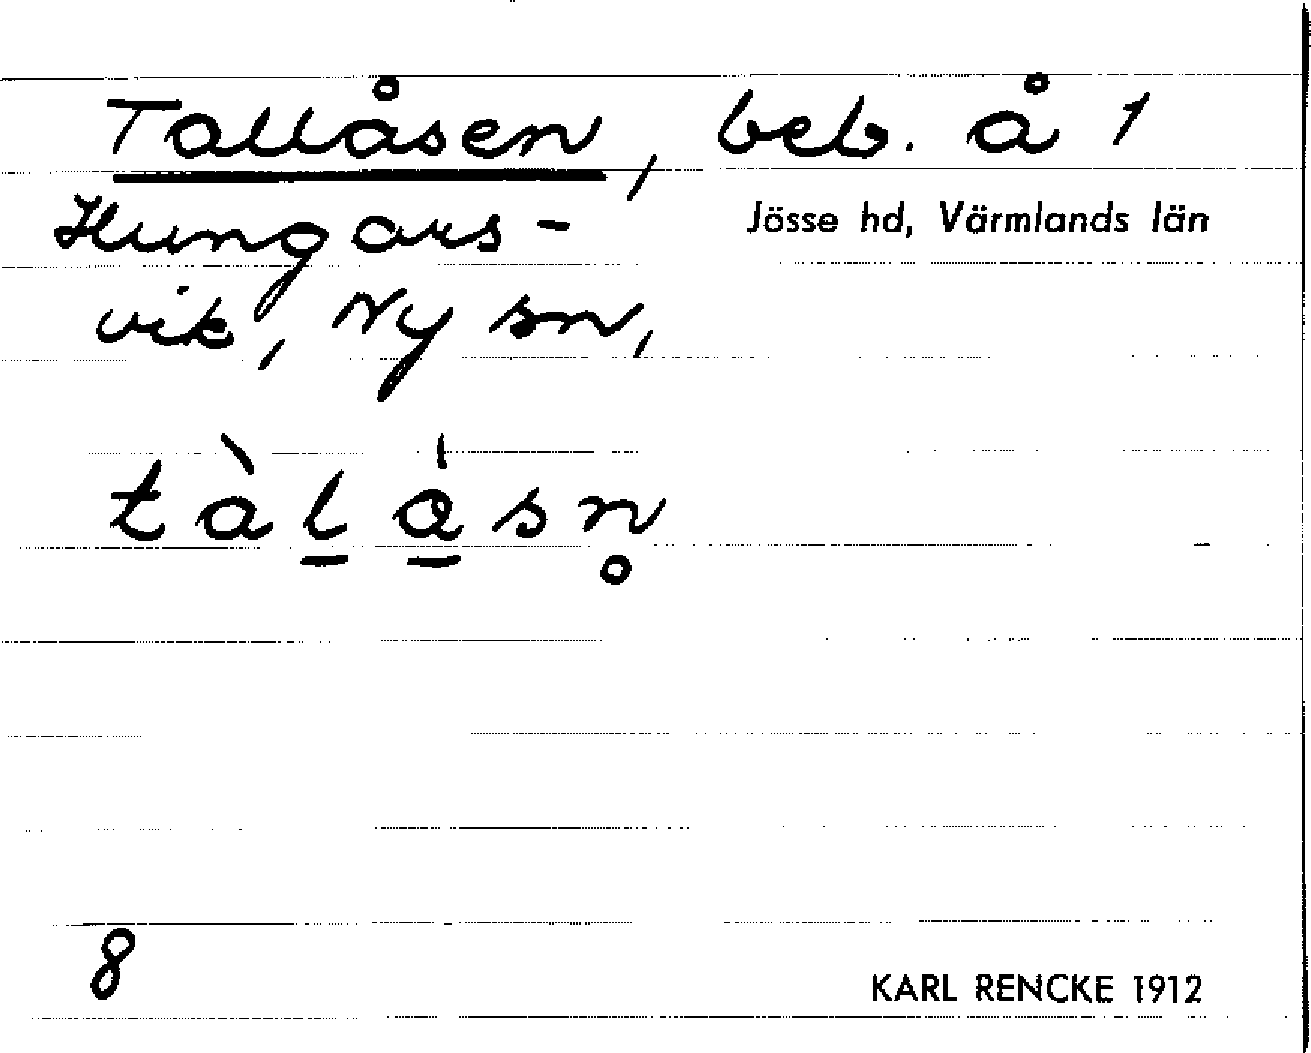 Tallåsen, beb. å 1
Hungals-
vik, Ny sn,
Jösse hd, Värmlands län
tàl̲ǻ̲sn̥
8
KARL RENCKE 1912